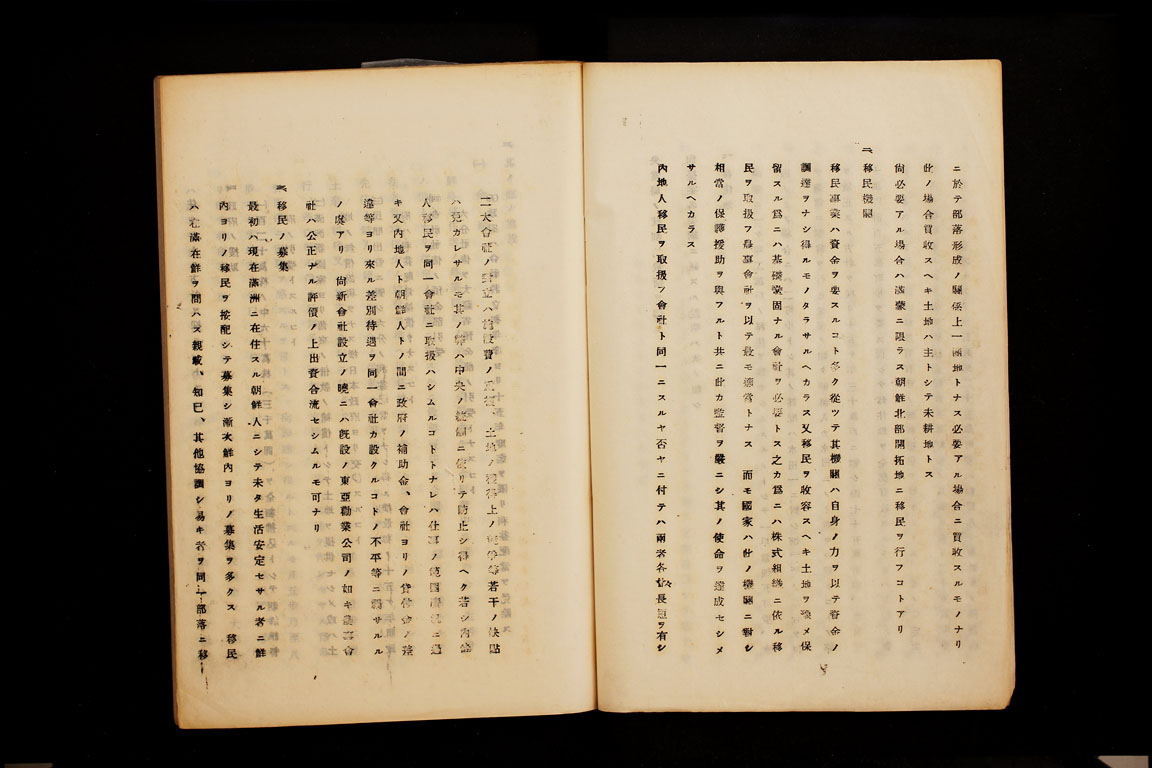 ニ於テ部落形成ノ關係上一團地トナス必要アル場合ニ買收スルモノナリ
此ノ場合買收スヘキ土地ハ主トシテ未耕地トス
尚必要アル場合ハ滿蒙ニ限ラス朝鮮北部開拓地ニ移民ヲ行フコトアリ
二、移民機關
移民事業ハ資金ヲ要スルコト多ク從ツテ其機關ハ自身ノ力ヲ以テ資金ノ
調達ヲナシ得ルモノタラサルヘカラス又移民ヲ收容スヘキ土地ヲ求メ保
留スル爲ニハ基礎鞏固ナル會社ヲ必要トス之カ爲ニハ株式組織ニ依ル移
民ヲ取扱フ農事會社ヲ以テ最モ適當トナス 而モ國家ハ此ノ機關ニ對シ
相當ノ保護援助ヲ與フルト共ニ此カ監督ヲ嚴ニシ其ノ使命ヲ達成セシメ
サルヘカラス
內地人移民ヲ取扱フ會社ト同一ニスルヤ否ヤニ付テハ兩者各皆長短ヲ有シ
二大會社ノ ハ 費ノ 土地ノ獲得上ノ競爭等若干ノ缺點
ハ免カレサルモ其ノ弊ハ中央ノ統制ニ依リテ防止シ得ヘク若シ內鮮
人移民ヲ同一會社ニ取扱ハシムルコトトナレハ仕事ノ範圍廣汎ニ過
キ又內地人ト朝鮮人トノ間ニ政府ノ補助金、會社ヨリノ貸付金ノ差
違等ヨリ來ル差別待遇ヲ同一會社カ設クルコトノ不平等ニ陷サルル
ノ虞アリ 尚新會社設立ノ曉ニハ旣設ノ東亞勸業公司ノ如キ農事會
社ハ公正ナル評價ノ上出資合流セシムルモ可ナリ
三、移民ノ募集
最初ハ現在滿洲ニ在住スル朝鮮人ニシテ未タ生活安定セサル者ニ鮮
內ヨリノ移民ヲ按配シテ募集シ漸次鮮內ヨリノ募集ヲ多クス 移民
ハ在滿在鮮ヲ問ハス親戚、知己、其他協調シ易キ者ヲ同一部落ニ移